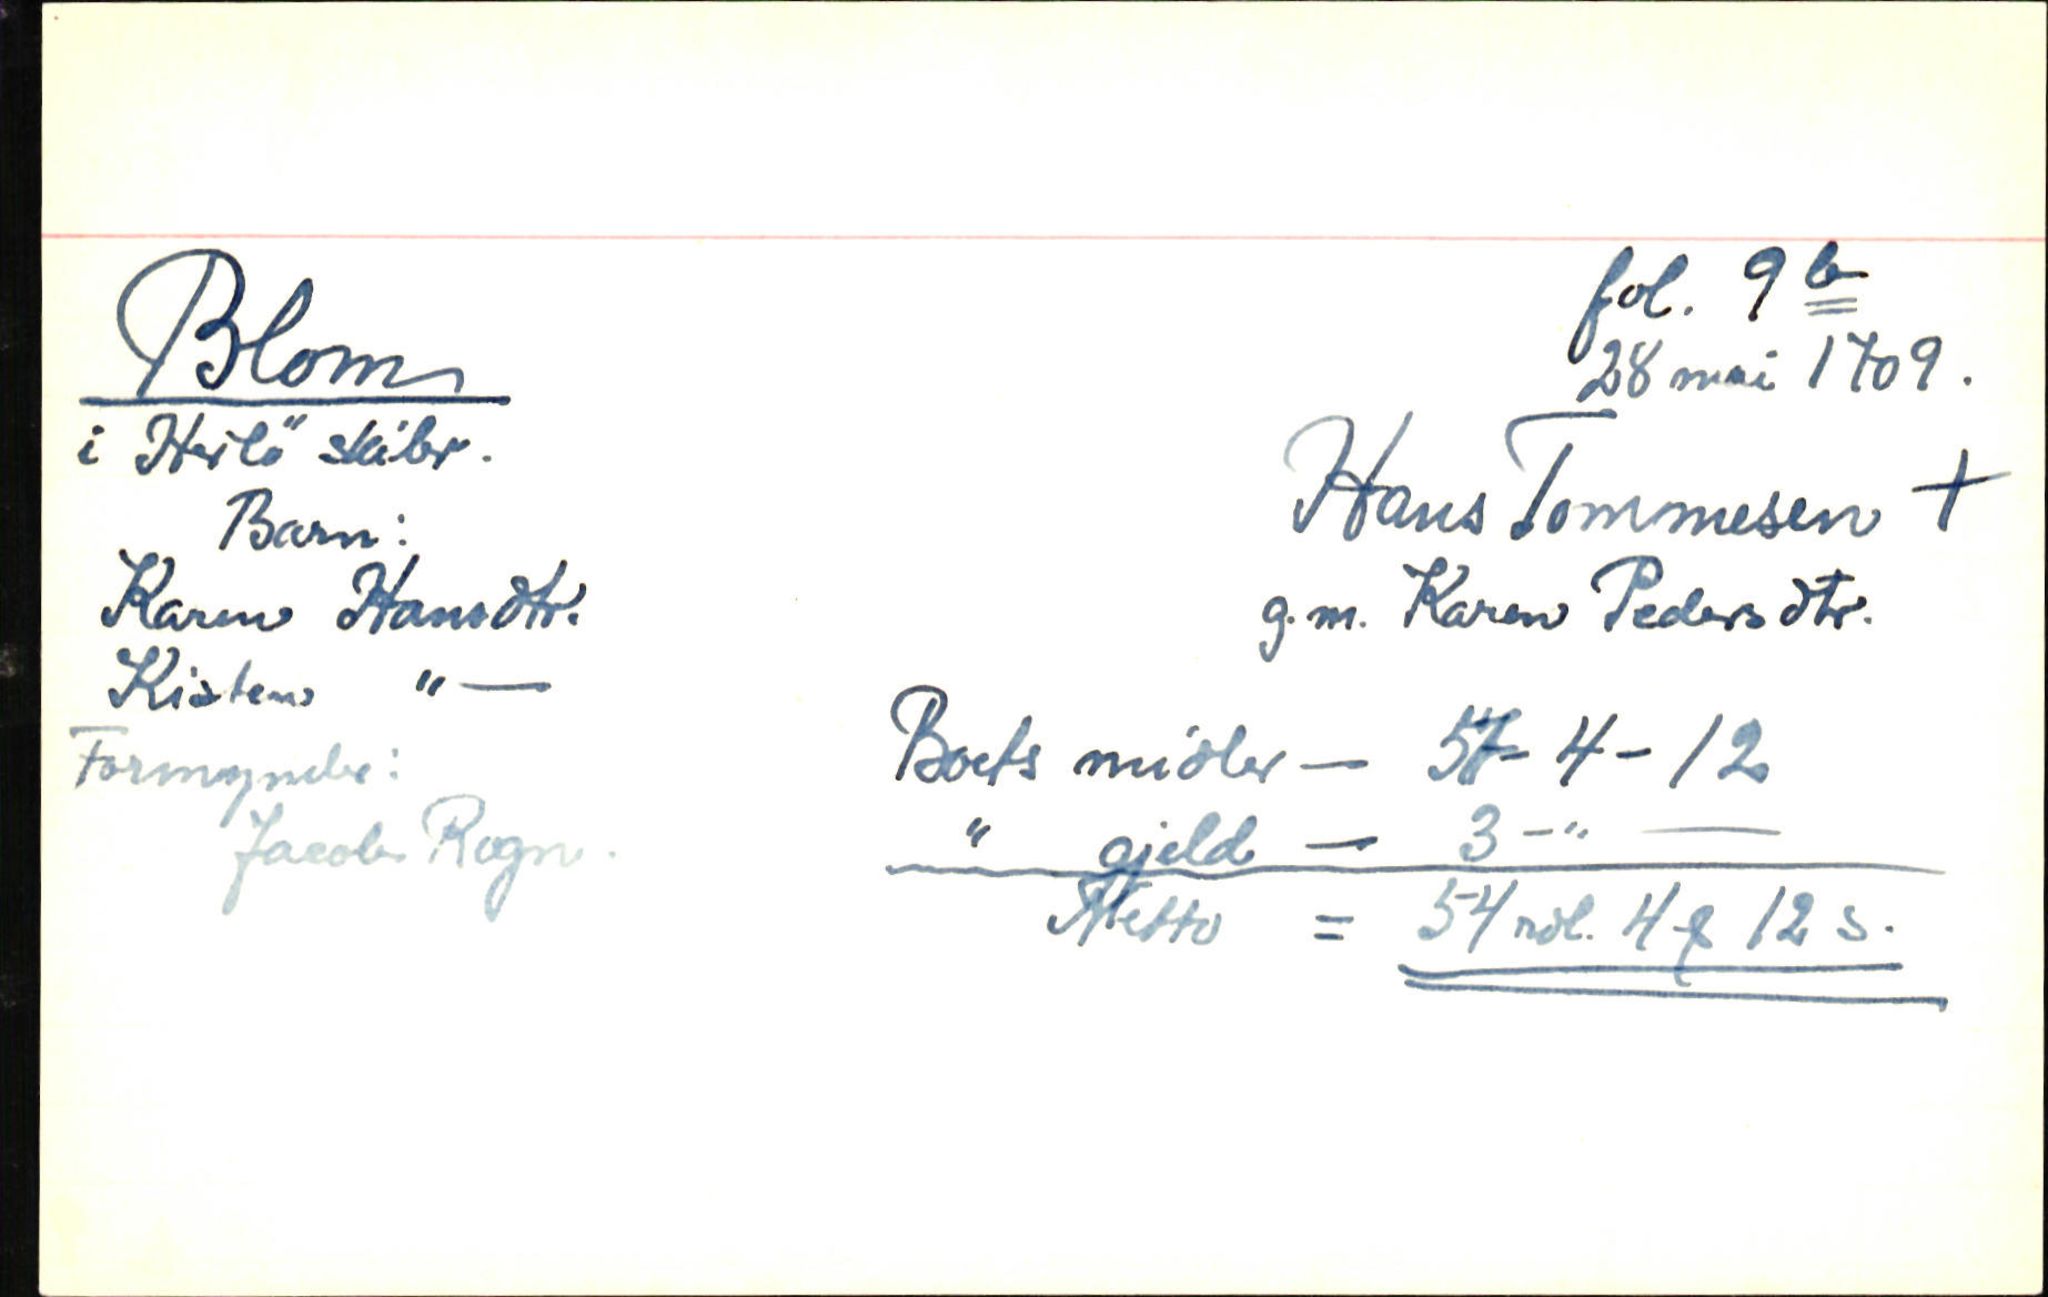 fol. 9 b
Blom
28 mai 1709.
i Herlö skibr.
Hans Tommesen +
Barn:
g.m. Karen Pedersdtr.
Karen Hansdtr.
Kisten " —
Formynder:
Jacob Rogn.
Boets midler — 57 - 4 - 12
" gjeld — 3 - " —
Netto = 54 rdl. 4 12 s.